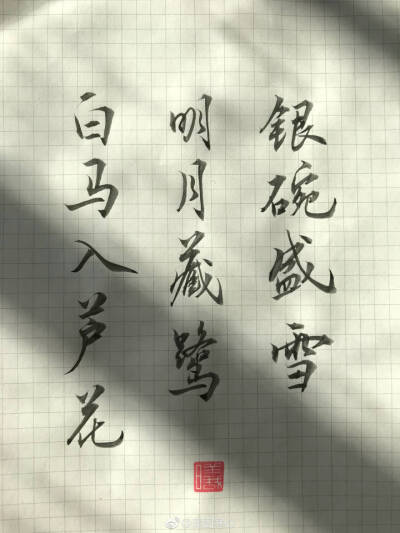 银碗盛雪
明月藏鹭
白马入芦花